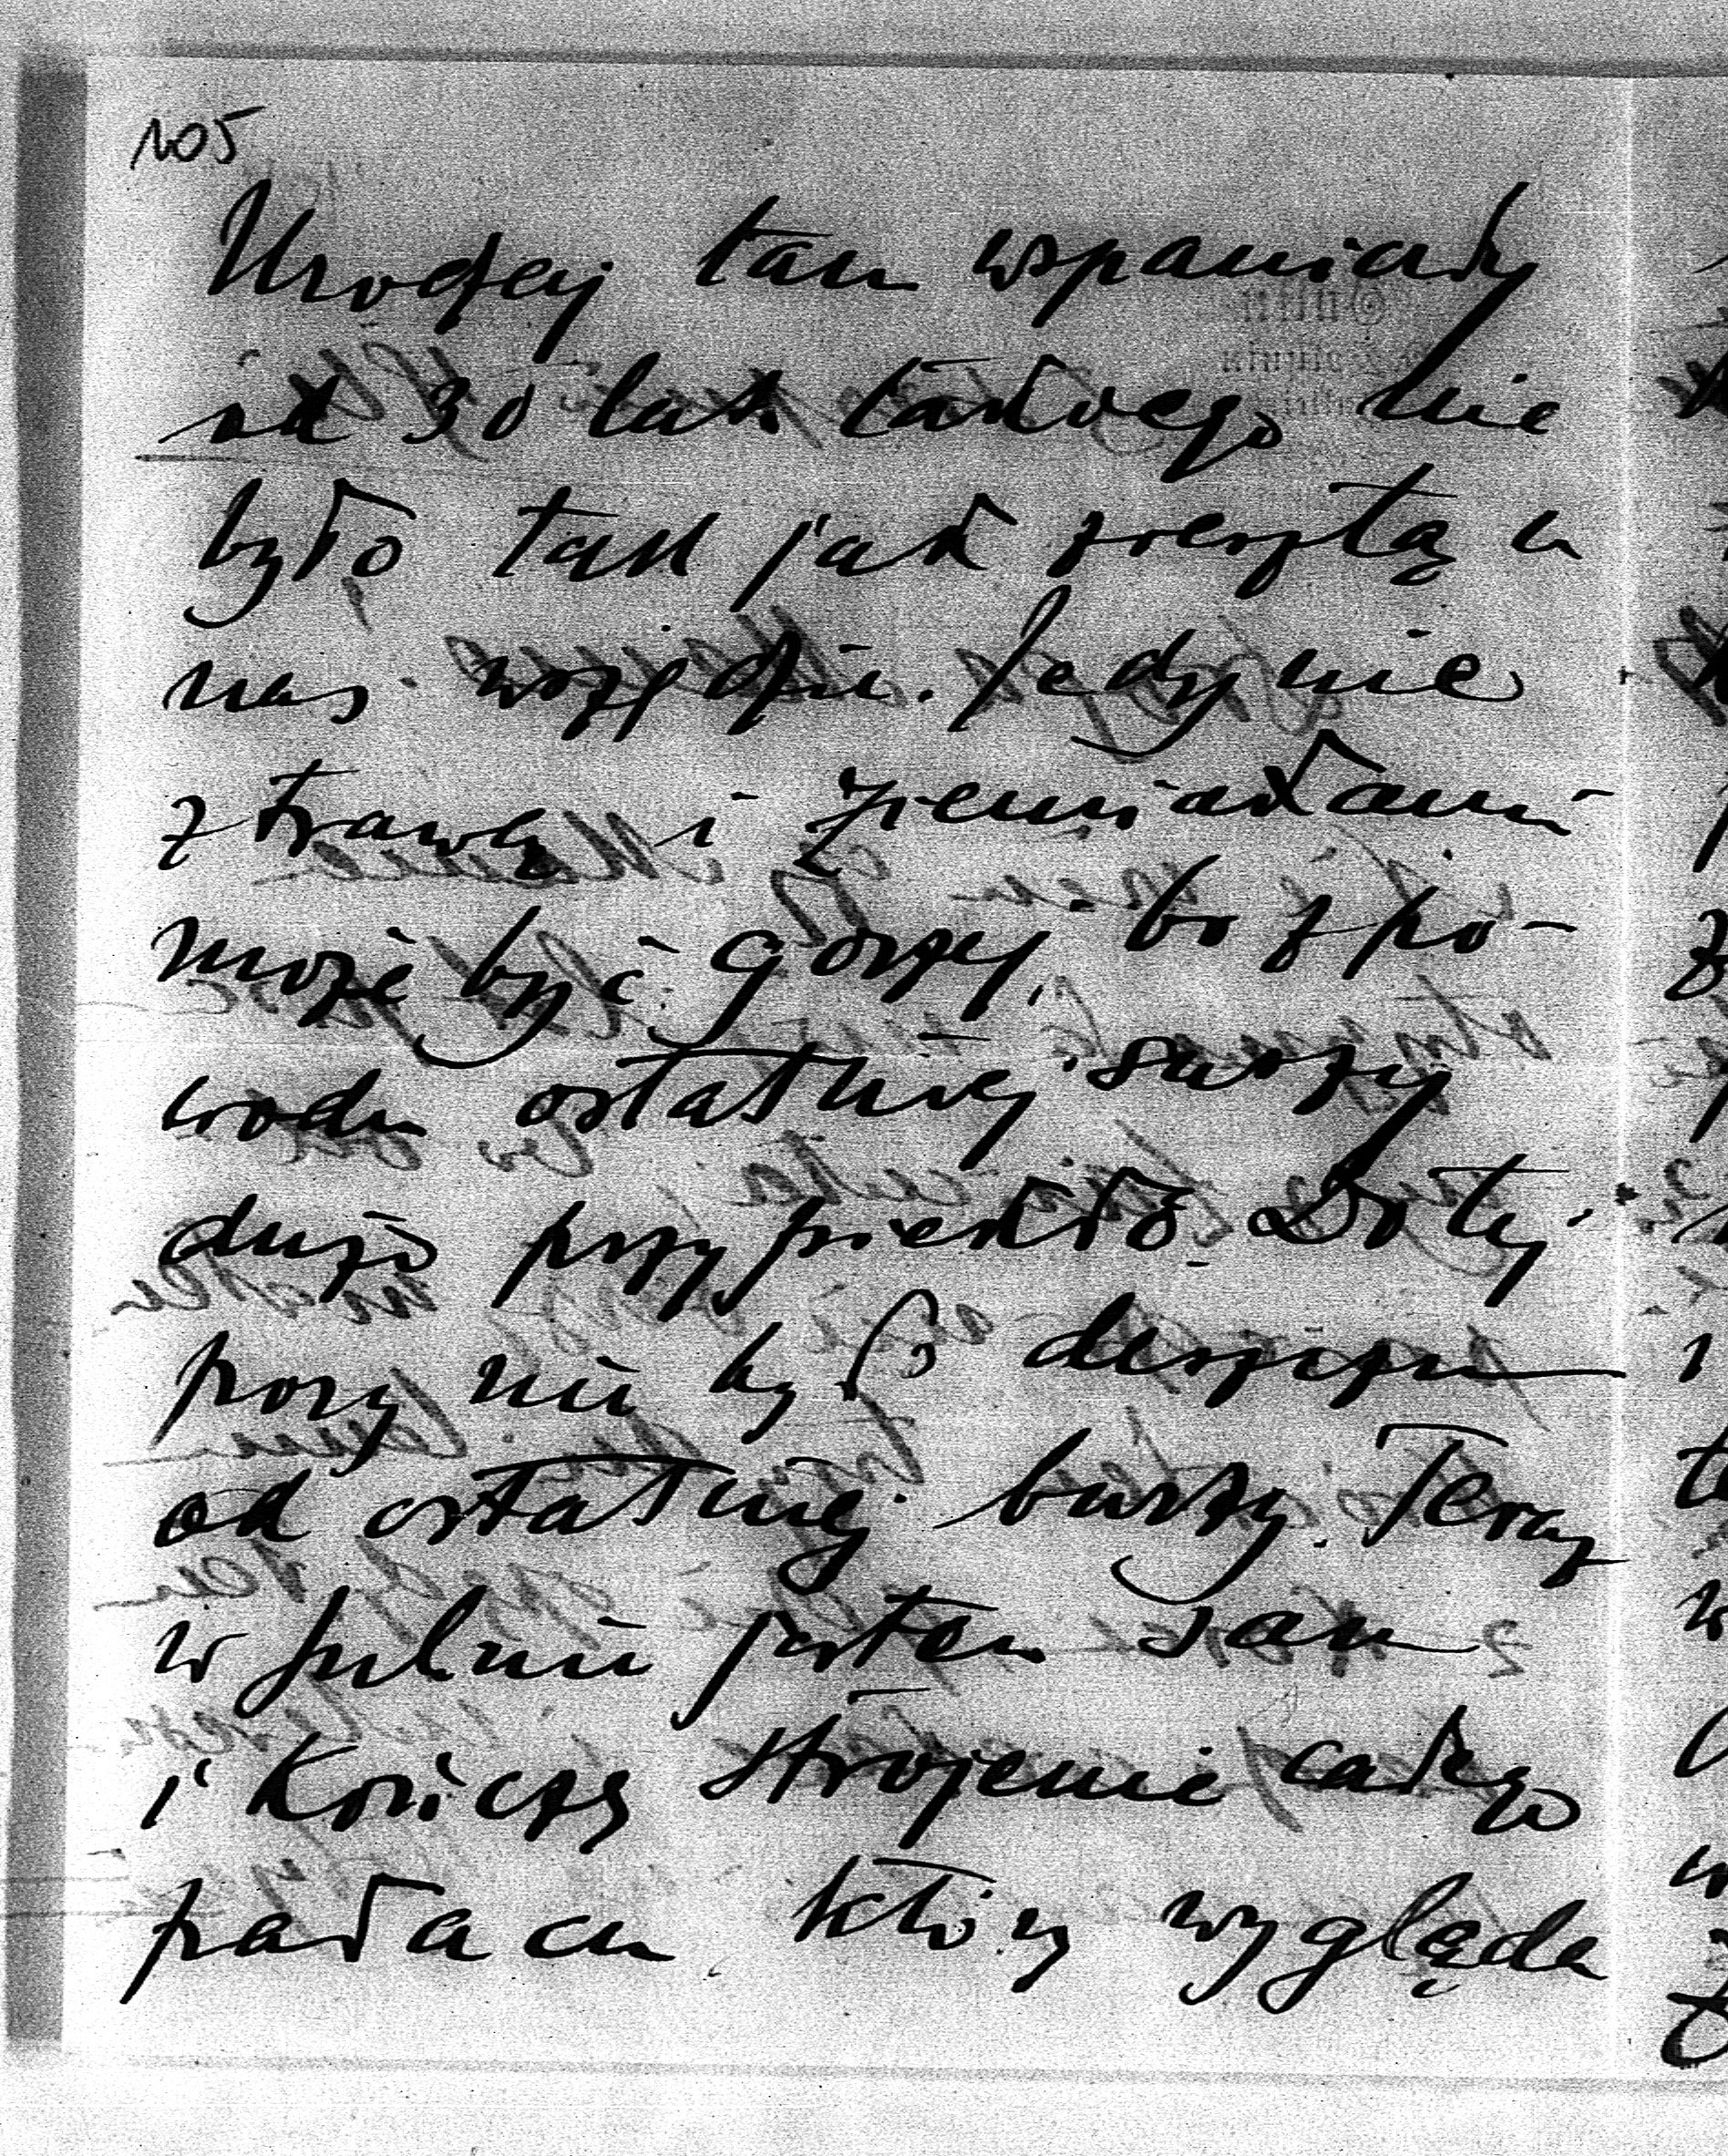 105
Urodzaj tam wspaniały
od 30 lat takiego nie
było tak jak zresztą u
nas wszędzie. Jedynie
z trawą i ziemniakami
może być gorzej, bo z po-
wodu ostatniej suszy
dużo przypiekło. Do tej
pory nie było deszczu
od ostatniej burzy. Teraz
w pełni jestem sam
i kończę strojenie całego
pałacu który wygląda